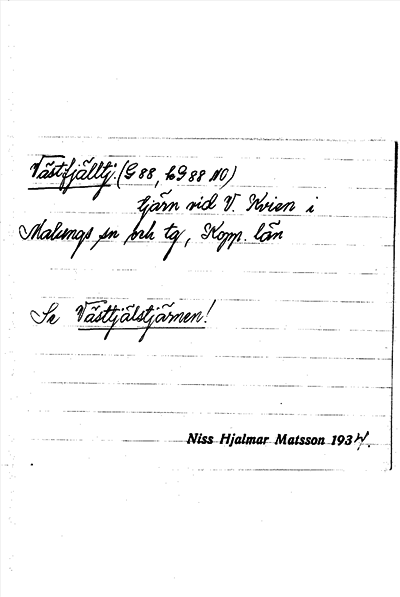 Västfjälltj. (G 88, hG 88 NO)
tjärn vid V. Kvien i
Malungs sn och tg, Kopp. län
Se Västtjälstjärnen!
Niss Hjalmar Matsson 1934.